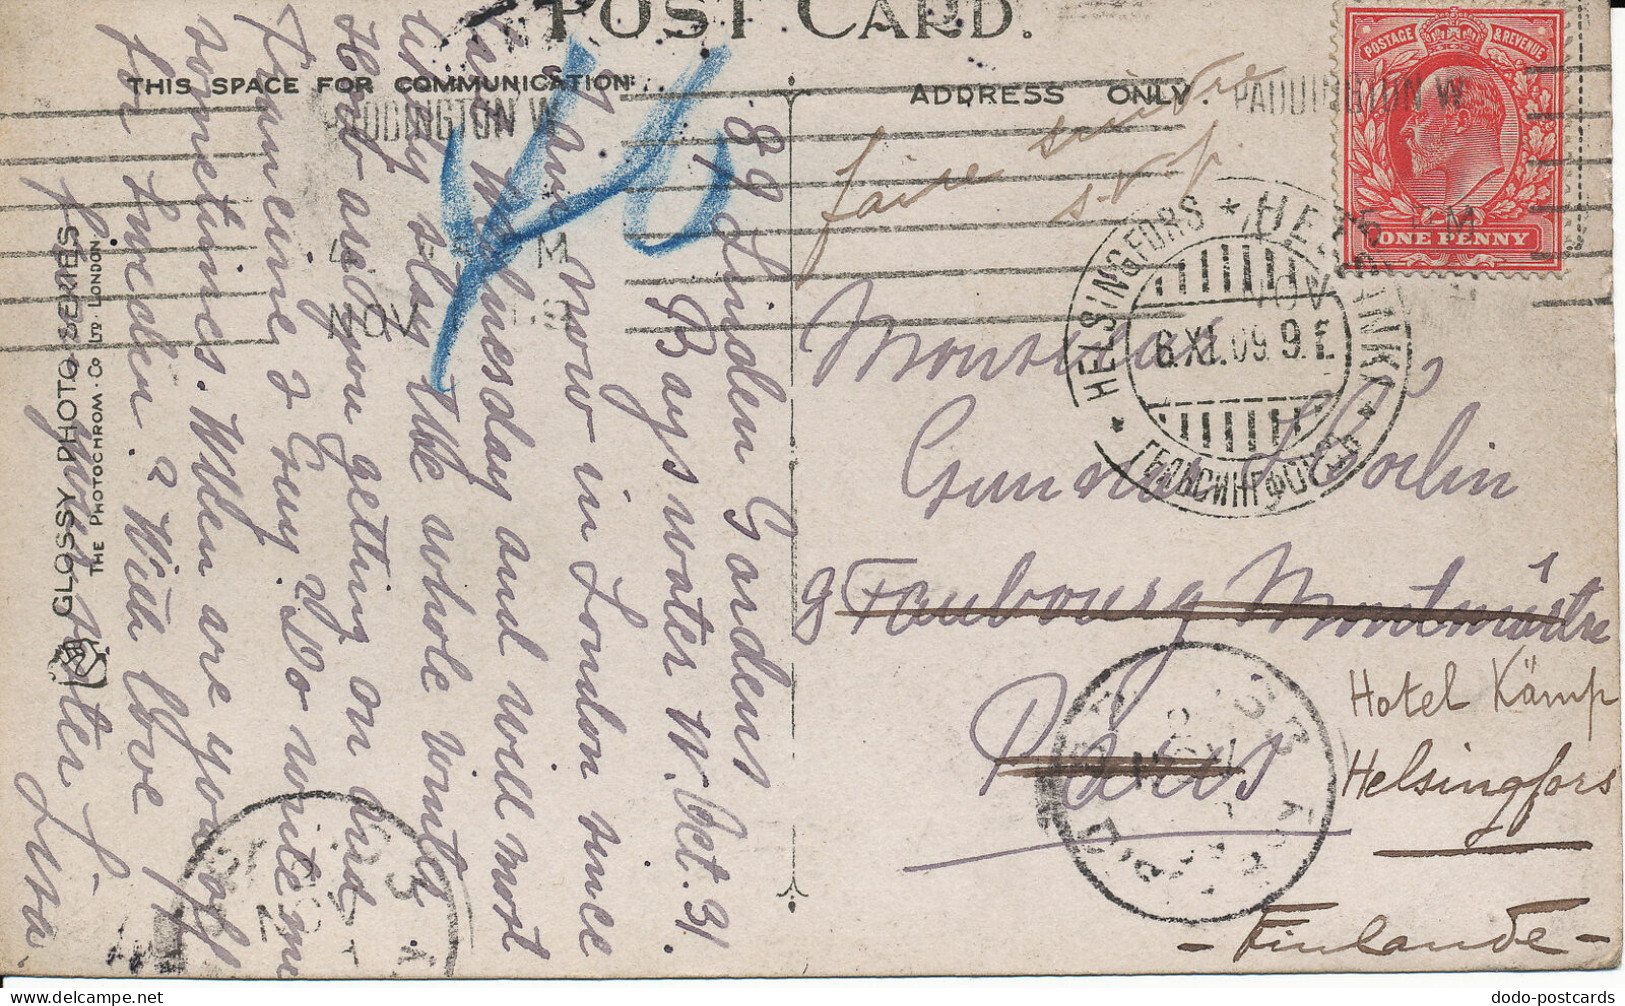 POST CARD.
THIS SPACE FOR COMMUNICATION
ADDRESS ONLY.
PADDINGTON W
PADDINGTON W
NOV
POSTAGE & REVENUE
ONE PENNY
HELSINGFORS * HELSINKI *
6.XI.09. 9.
ГЕЛЬСИНГФОРСЪ
faire suivre
s.v.p.
Monsieur
Gunnar
9 Faubourg Montmartre
Paris
Hotel Kämp
Helsingfors
- Finlande -
89 Linden Gardens
Bayswater W. Oct. 31.
I am now in London since
Wednesday and will most
stay the whole winter
How are you getting on and
Do write me
sometimes. When are you off
for Sweden? With love
Your sister Lisa.
GLOSSY PHOTO SERIES
THE PHOTOCHROM. Co LTD. LONDON
dodo-postcards